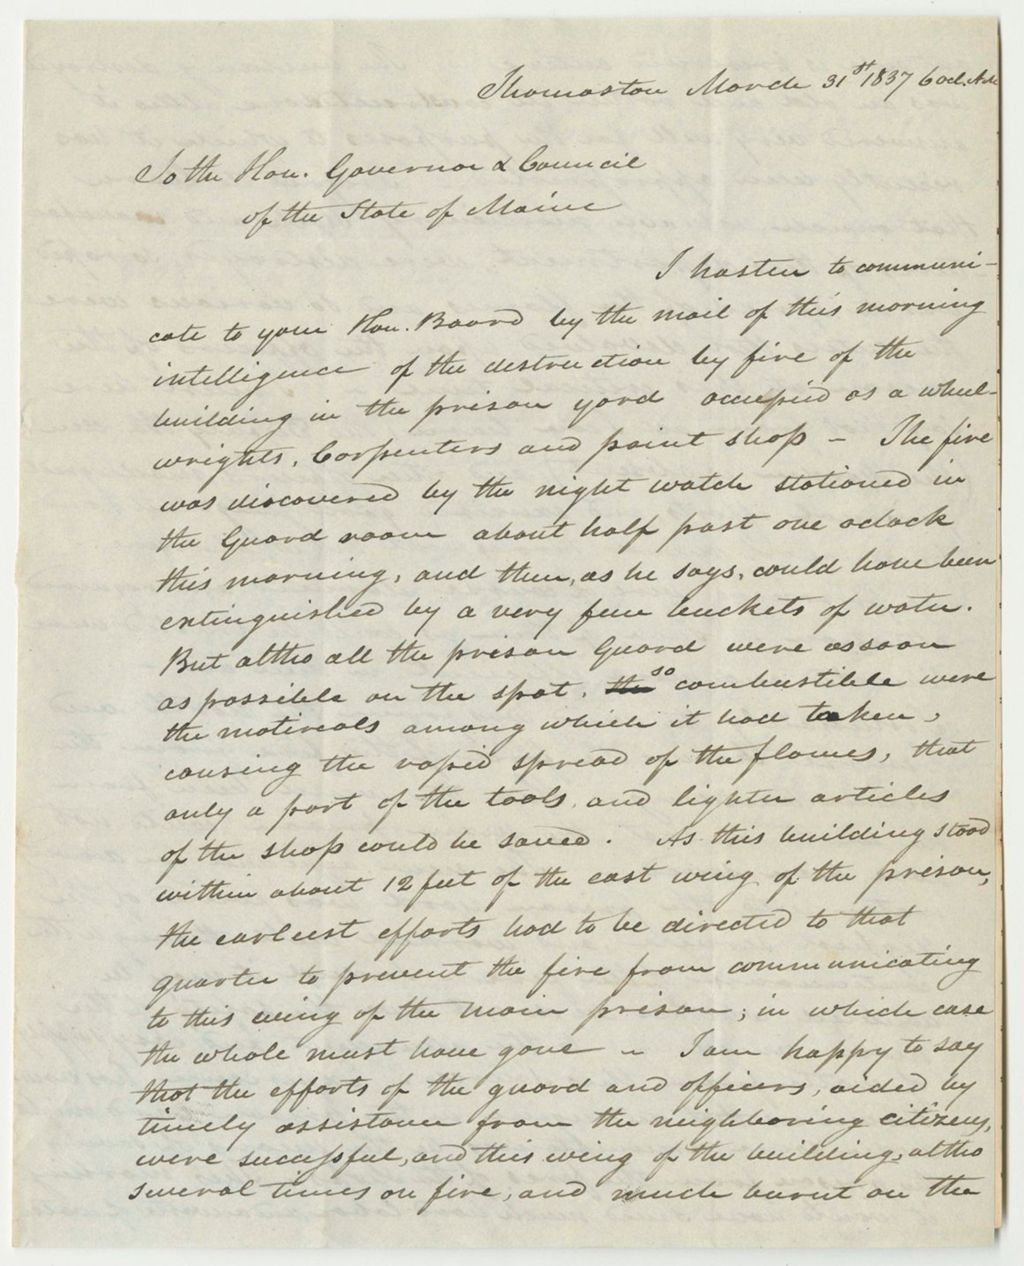 Thomaston March 31st 1837 6 ocl. A.M.
To the Hon. Governor & Council
of the State of Maine
I hasten to communi-
cate to your Hon. Board by the mail of this morning
intelligence of the destruction by fire of the
building in the prison yard occupied as a wheel-
wrights, Carpenters and paint shop - The fire
was discovered by the night watch stationed in
the Guard room about half past one oclock
this morning, and then, as he says, could have been
extinguished by a very few buckets of water.
But altho all the prison Guard were as soon
as possible on the spot, so combustible were
the materials among which it had taken,
causing the rapid spread of the flames, that
only a part of the tools, and lighter articles
of the shop could be saved. As this building stood
within about 12 feet of the east wing of the prison,
the earliest efforts had to be directed to that
quarter to prevent the fire from communicating
to this wing of the main prison; in which case
the whole must have gone - I am happy to say
that the efforts of the guard and officers, aided by
timely assistance from the neighboring citizens,
were successful, and this wing of the building, altho
several times on fire, and much burnt on the